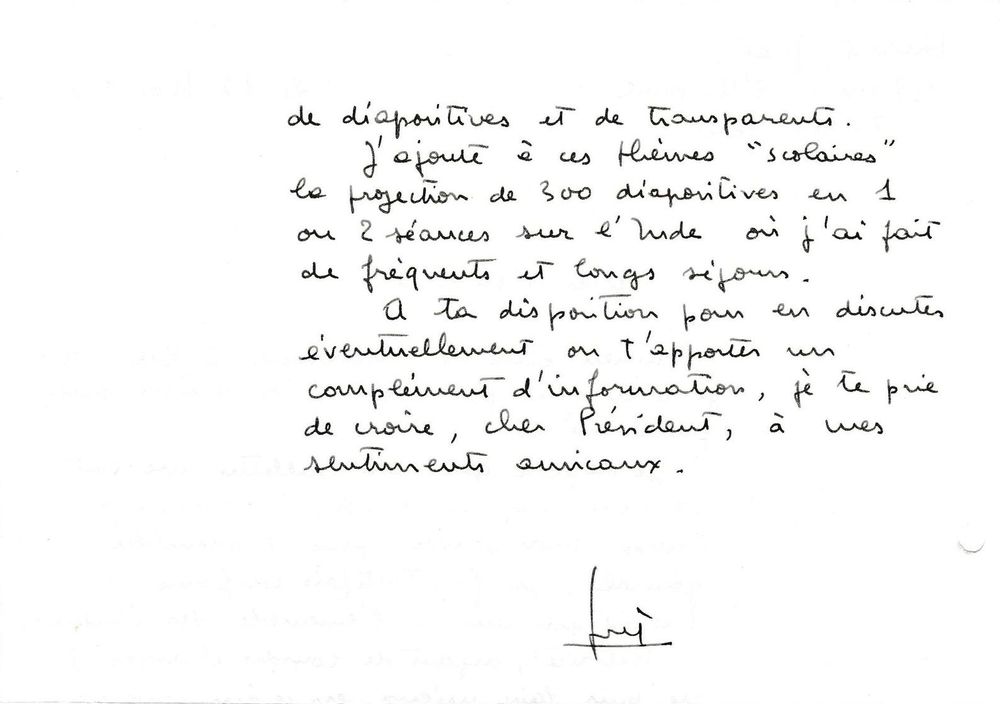 de diapositives et de transparents.
J'ajoute à ces thèmes "scolaires"
la projection de 300 diapositives en 1
ou 2 séances sur l'Inde où j'ai fait
de fréquents et longs séjours.
A ta disposition pour en discuter
éventuellement ou t'apporter un
complément d'information, je te prie
de croire, cher Président, à mes
sentiments amicaux.